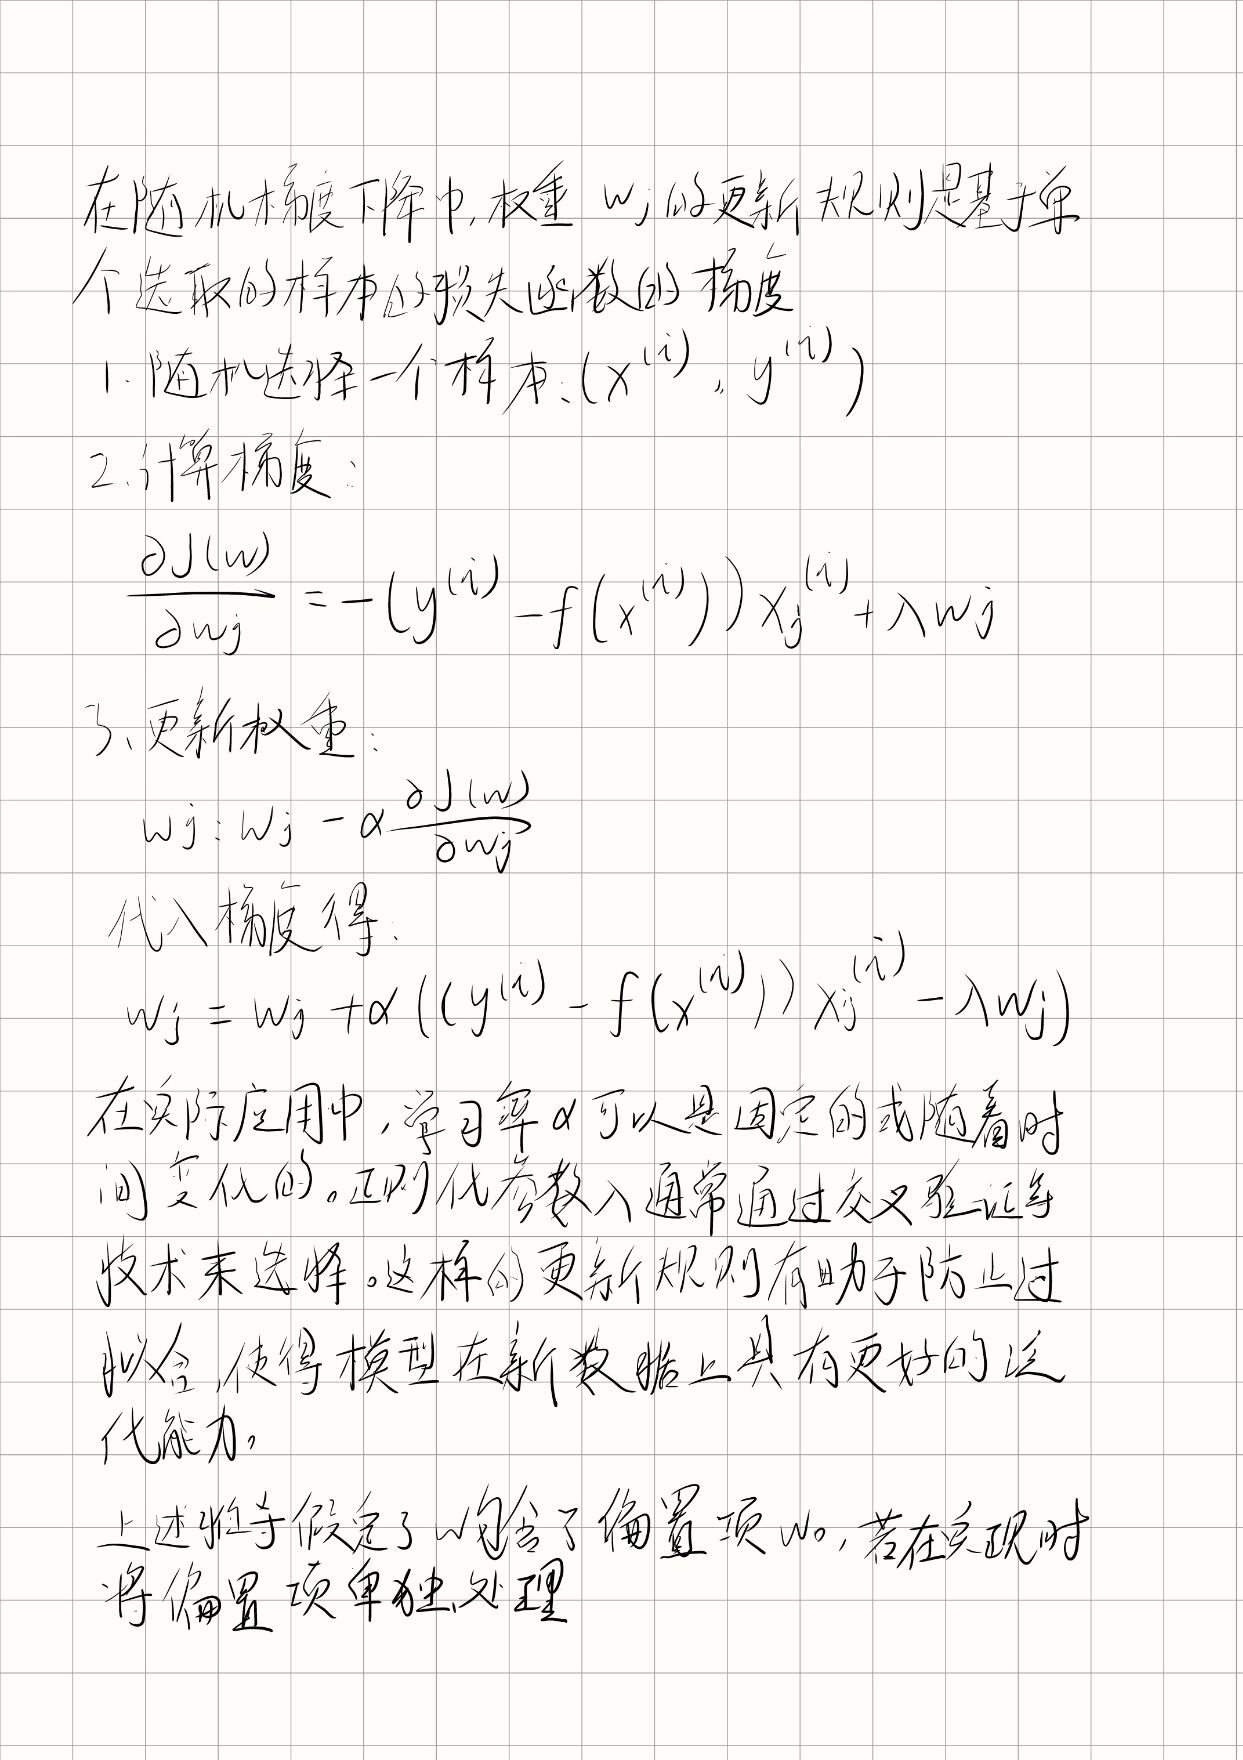 在随机梯度下降中,权重 wj的更新规则是基于单
个选取的样本的损失函数的梯度
1.随机选择一个样本:(x⁽ⁱ⁾, y⁽ⁱ⁾)
2.计算梯度:
∂J(w)/∂wj = -(y⁽ⁱ⁾ - f(x⁽ⁱ⁾))xj⁽ⁱ⁾ + λwj
3、更新权重:
wj : wj - α ∂J(w)/∂wj
代入梯度得:
wj = wj + α((y⁽ⁱ⁾ - f(x⁽ⁱ⁾))xj⁽ⁱ⁾ - λwj)
在实际应用中,学习率α可以是固定的或随着时
间变化的。正则化参数λ通常通过交叉验证等
技术来选择。这样的更新规则有助于防止过
拟合,使得模型在新数据上具有更好的泛
化能力。
上述推导假定了w包含了偏置项w₀,若在实现时
将偏置项单独处理